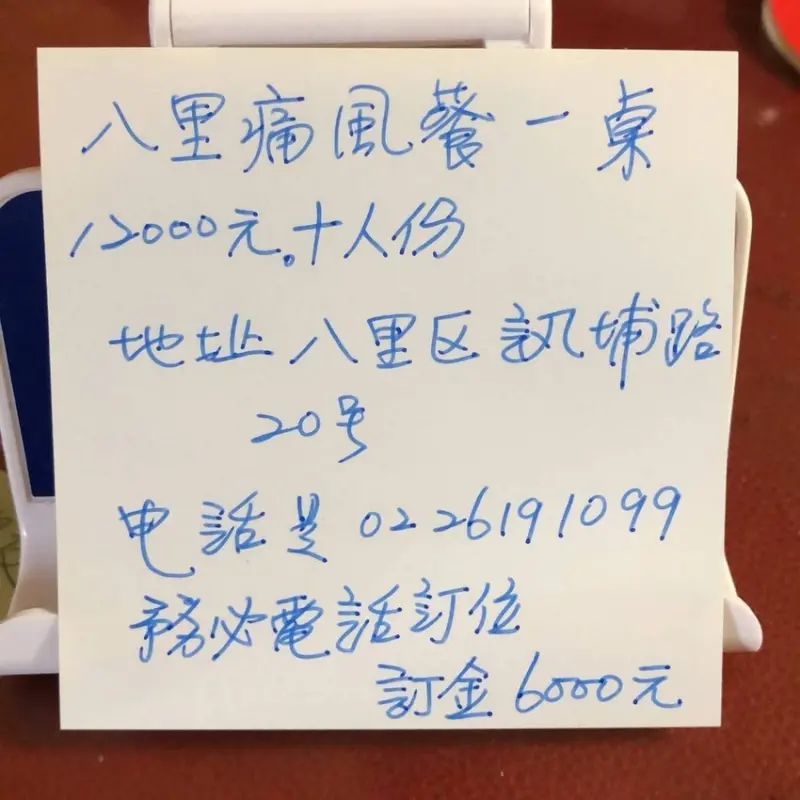 八里痛風餐一桌
12000元.十人份
地址八里区訊埔路
20号
电話是0226191099
務必電話訂位
訂金6000元